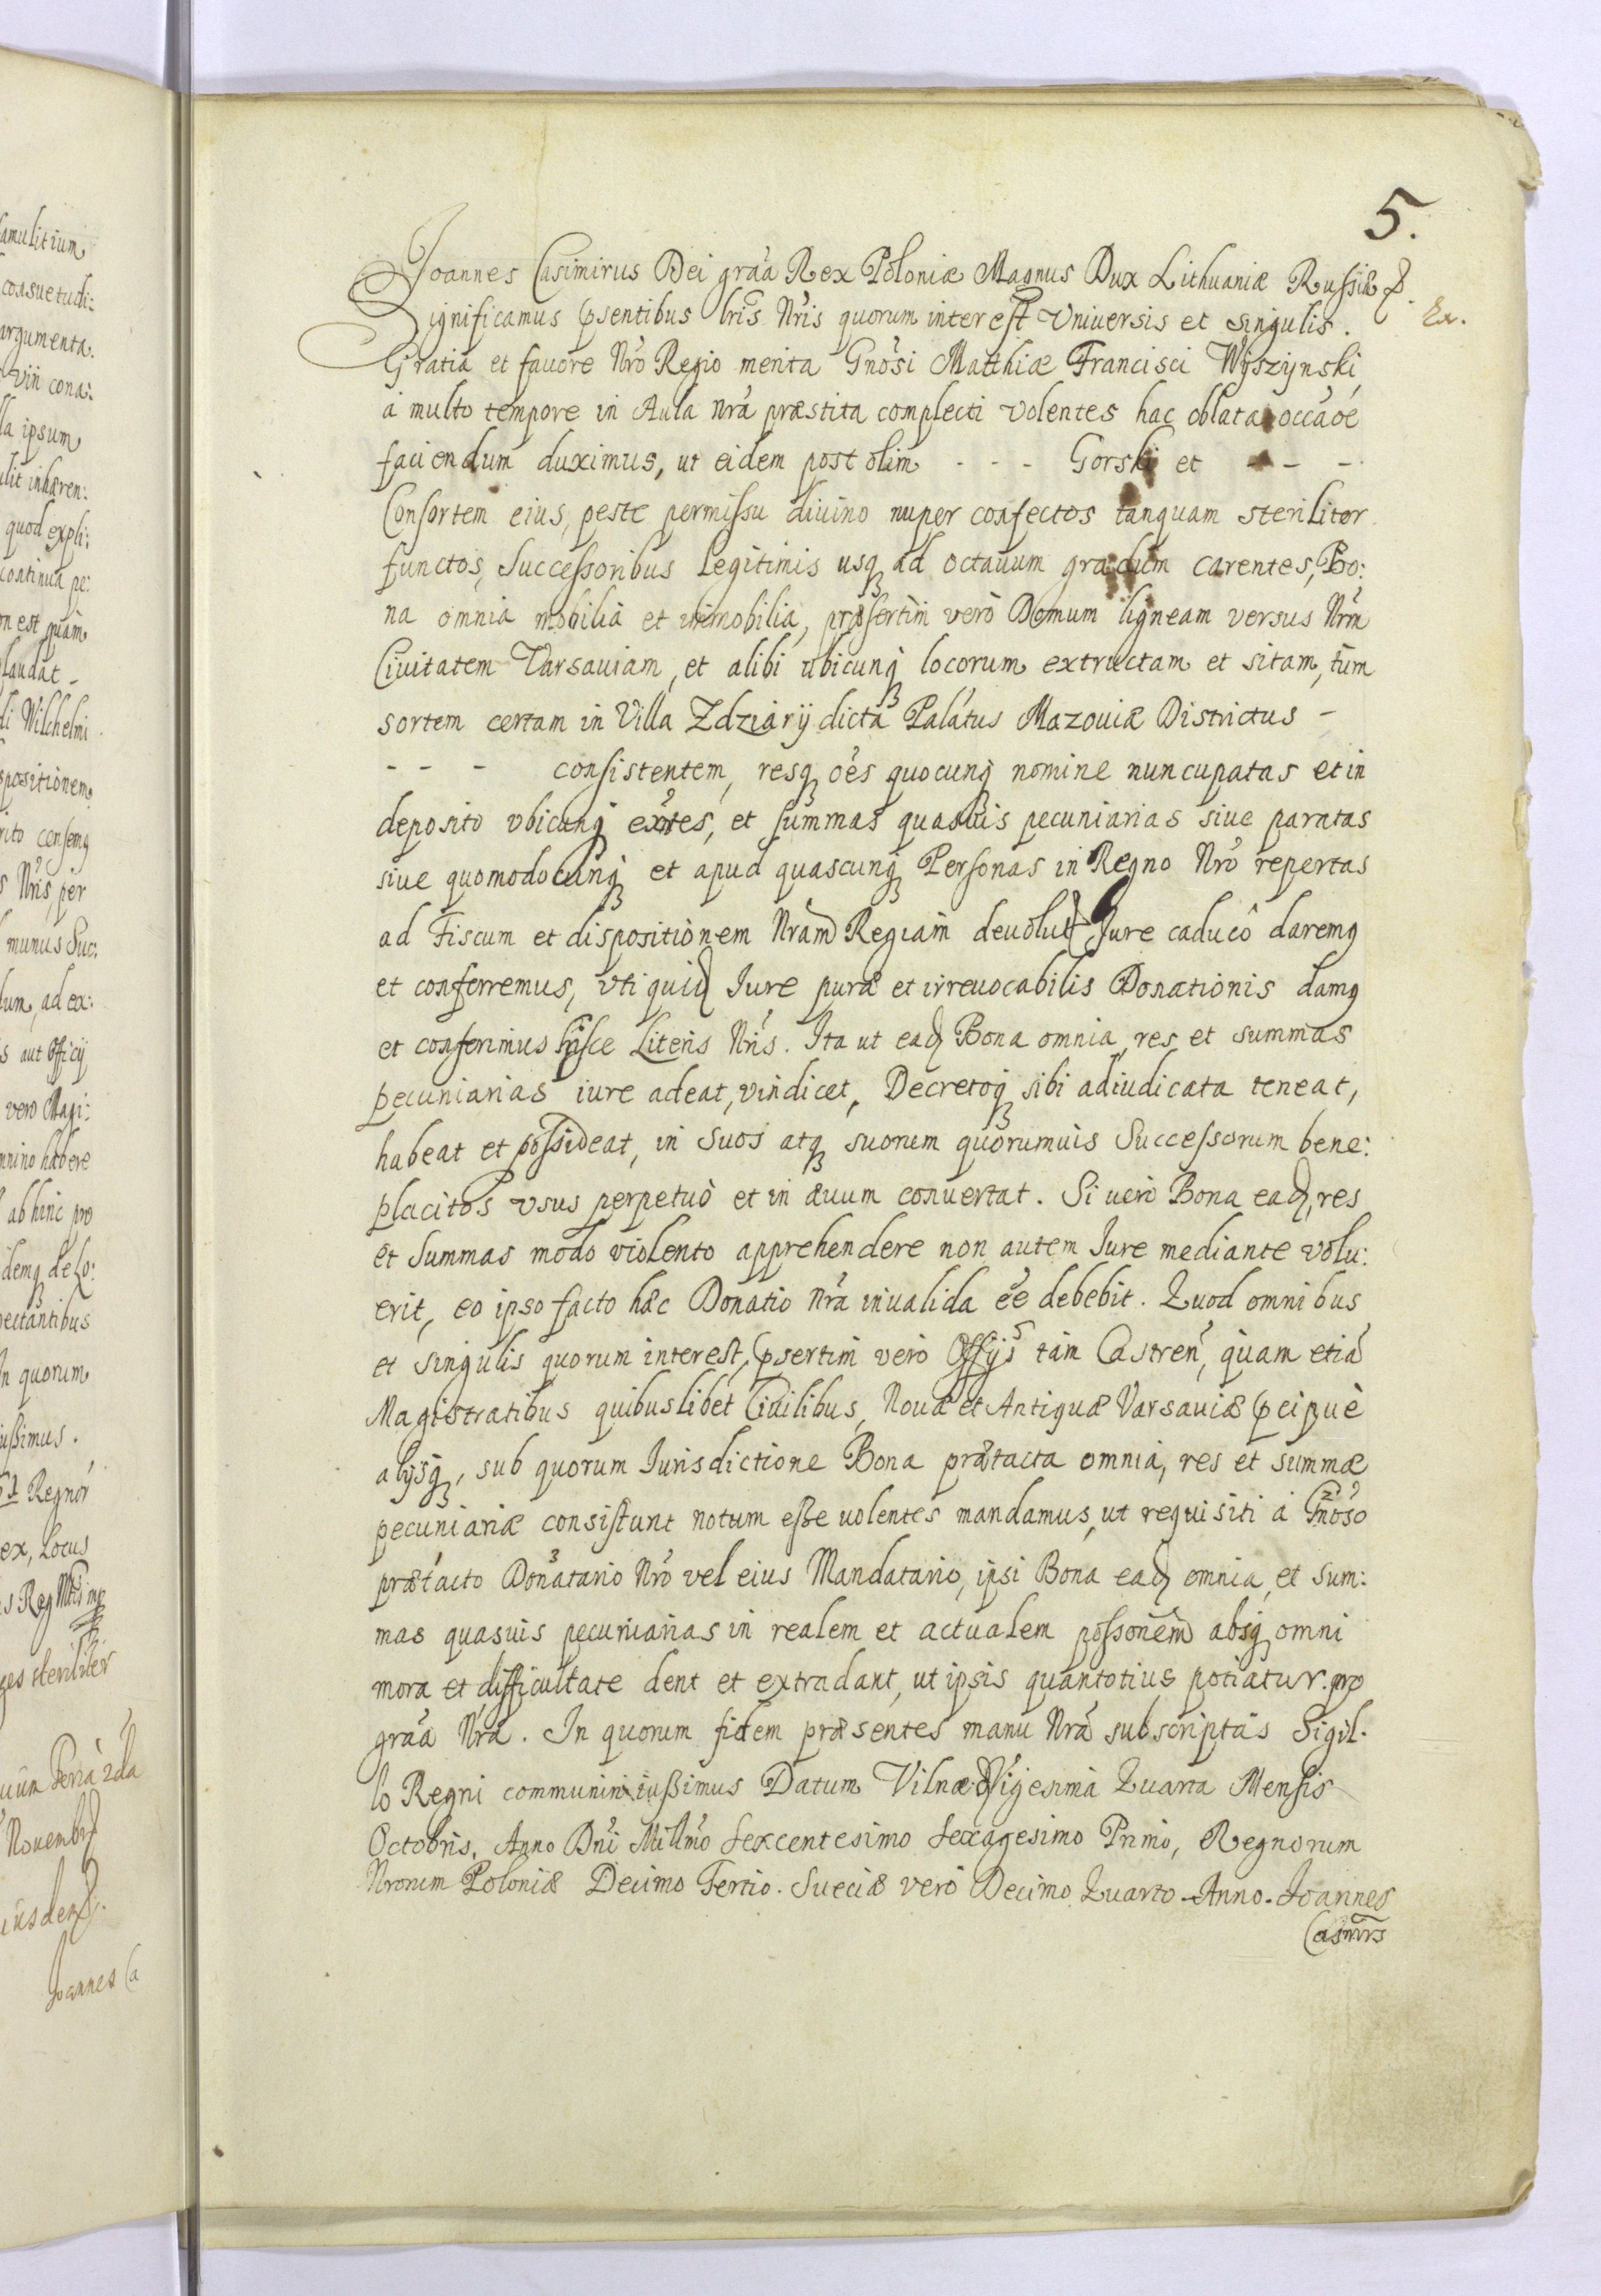 5.
Joannes Casimirus Dei gra'a Rex Poloniæ Magnus Dux Lithuaniæ Russiæ
Significamus psentibus lris Nris quorum interest Vniuersis et singulis. Ex.
Gratia et fauore Nro Regio merita Gnosi Matthiæ Francisci Wyszynski
a multo tempore in Aula nra præstita complecti volentes hac oblata occaoe
faciendum duximus, ut eidem post olim - - - Gorski et - - -
Consortem eius, peste permissu diuino nuper confectos tanquam steriliter
functos, Successoribus legitimis usq ad octauum gradum carentes, Bo:
na omnia mobilia et immobilia, præsertim verò Domum ligneam versus Nrm
Ciuitatem Varsauiam, et alibi ubicunq locorum extructam et sitam, tùm
sortem certam in Villa Zdziary dicta Palatus Mazouiæ Districtus -
- - - consistentem, resq oes quocunq nomine nuncupatas et in
deposito vbicunq extes, et summas quasuis pecuniarias siue paratas
siue quomodocunq et apud quascunq Personas in Regno Nro repertas
ad Fiscum et dispositionem Nram Regiam deuolut Jure caducô daremq
et conferremus, vti quid Jure puræ et irreuocabilis Donationis damq
et conferimus hisce Literis Nris. Ita ut ead Bona omnia, res et summas
pecuniarias iure adeat, vindicet, Decretoq sibi adiudicata teneat,
habeat et possideat, in suos atq suorum quorumuis Successorum bene:
placitos vsus perpetuò et in æuum conuertat. Si uerò Bona ead, res
et summas modo violento apprehendere non autem Jure mediante volu:
erit, eo ipso facto hæc Donatio nra inualida ee debebit. Quod omnibus
et singulis quorum interest, psertim verò Offijs tàm Castren, quam etia
Magistratibus quibuslibet Ciuilibus, Nouæ et Antiquæ Varsauiæ pcipuè
alijsq, sub quorum Jurisdictione Bona prætacta omnia, res et summæ
pecuniariæ consistunt notum esse uolentes mandamus, ut requisiti à Gnoso
prætacto Donatario Nro vel eius Mandatario, ipsi Bona ead omnia, et sum:
mas quasuis pecuniarias in realem et actualem possonem absq omni
mora et difficultate dent et extradant, ut ipsis quantotius potiatur. pro
gra'a Nra. In quorum fidem præsentes manu Nra subscriptas Sigil.
lo Regni communiri iussimus Datum Vilnæ Vigesima Quarta Mensis
Octobris. Anno Dni Millmo Sexcentesimo Sexagesimo Primo, Regnorum
Nrorum Poloniæ Decimo Tertio. Sueciæ verò Decimo Quarto Anno. Joannes
Casimrs